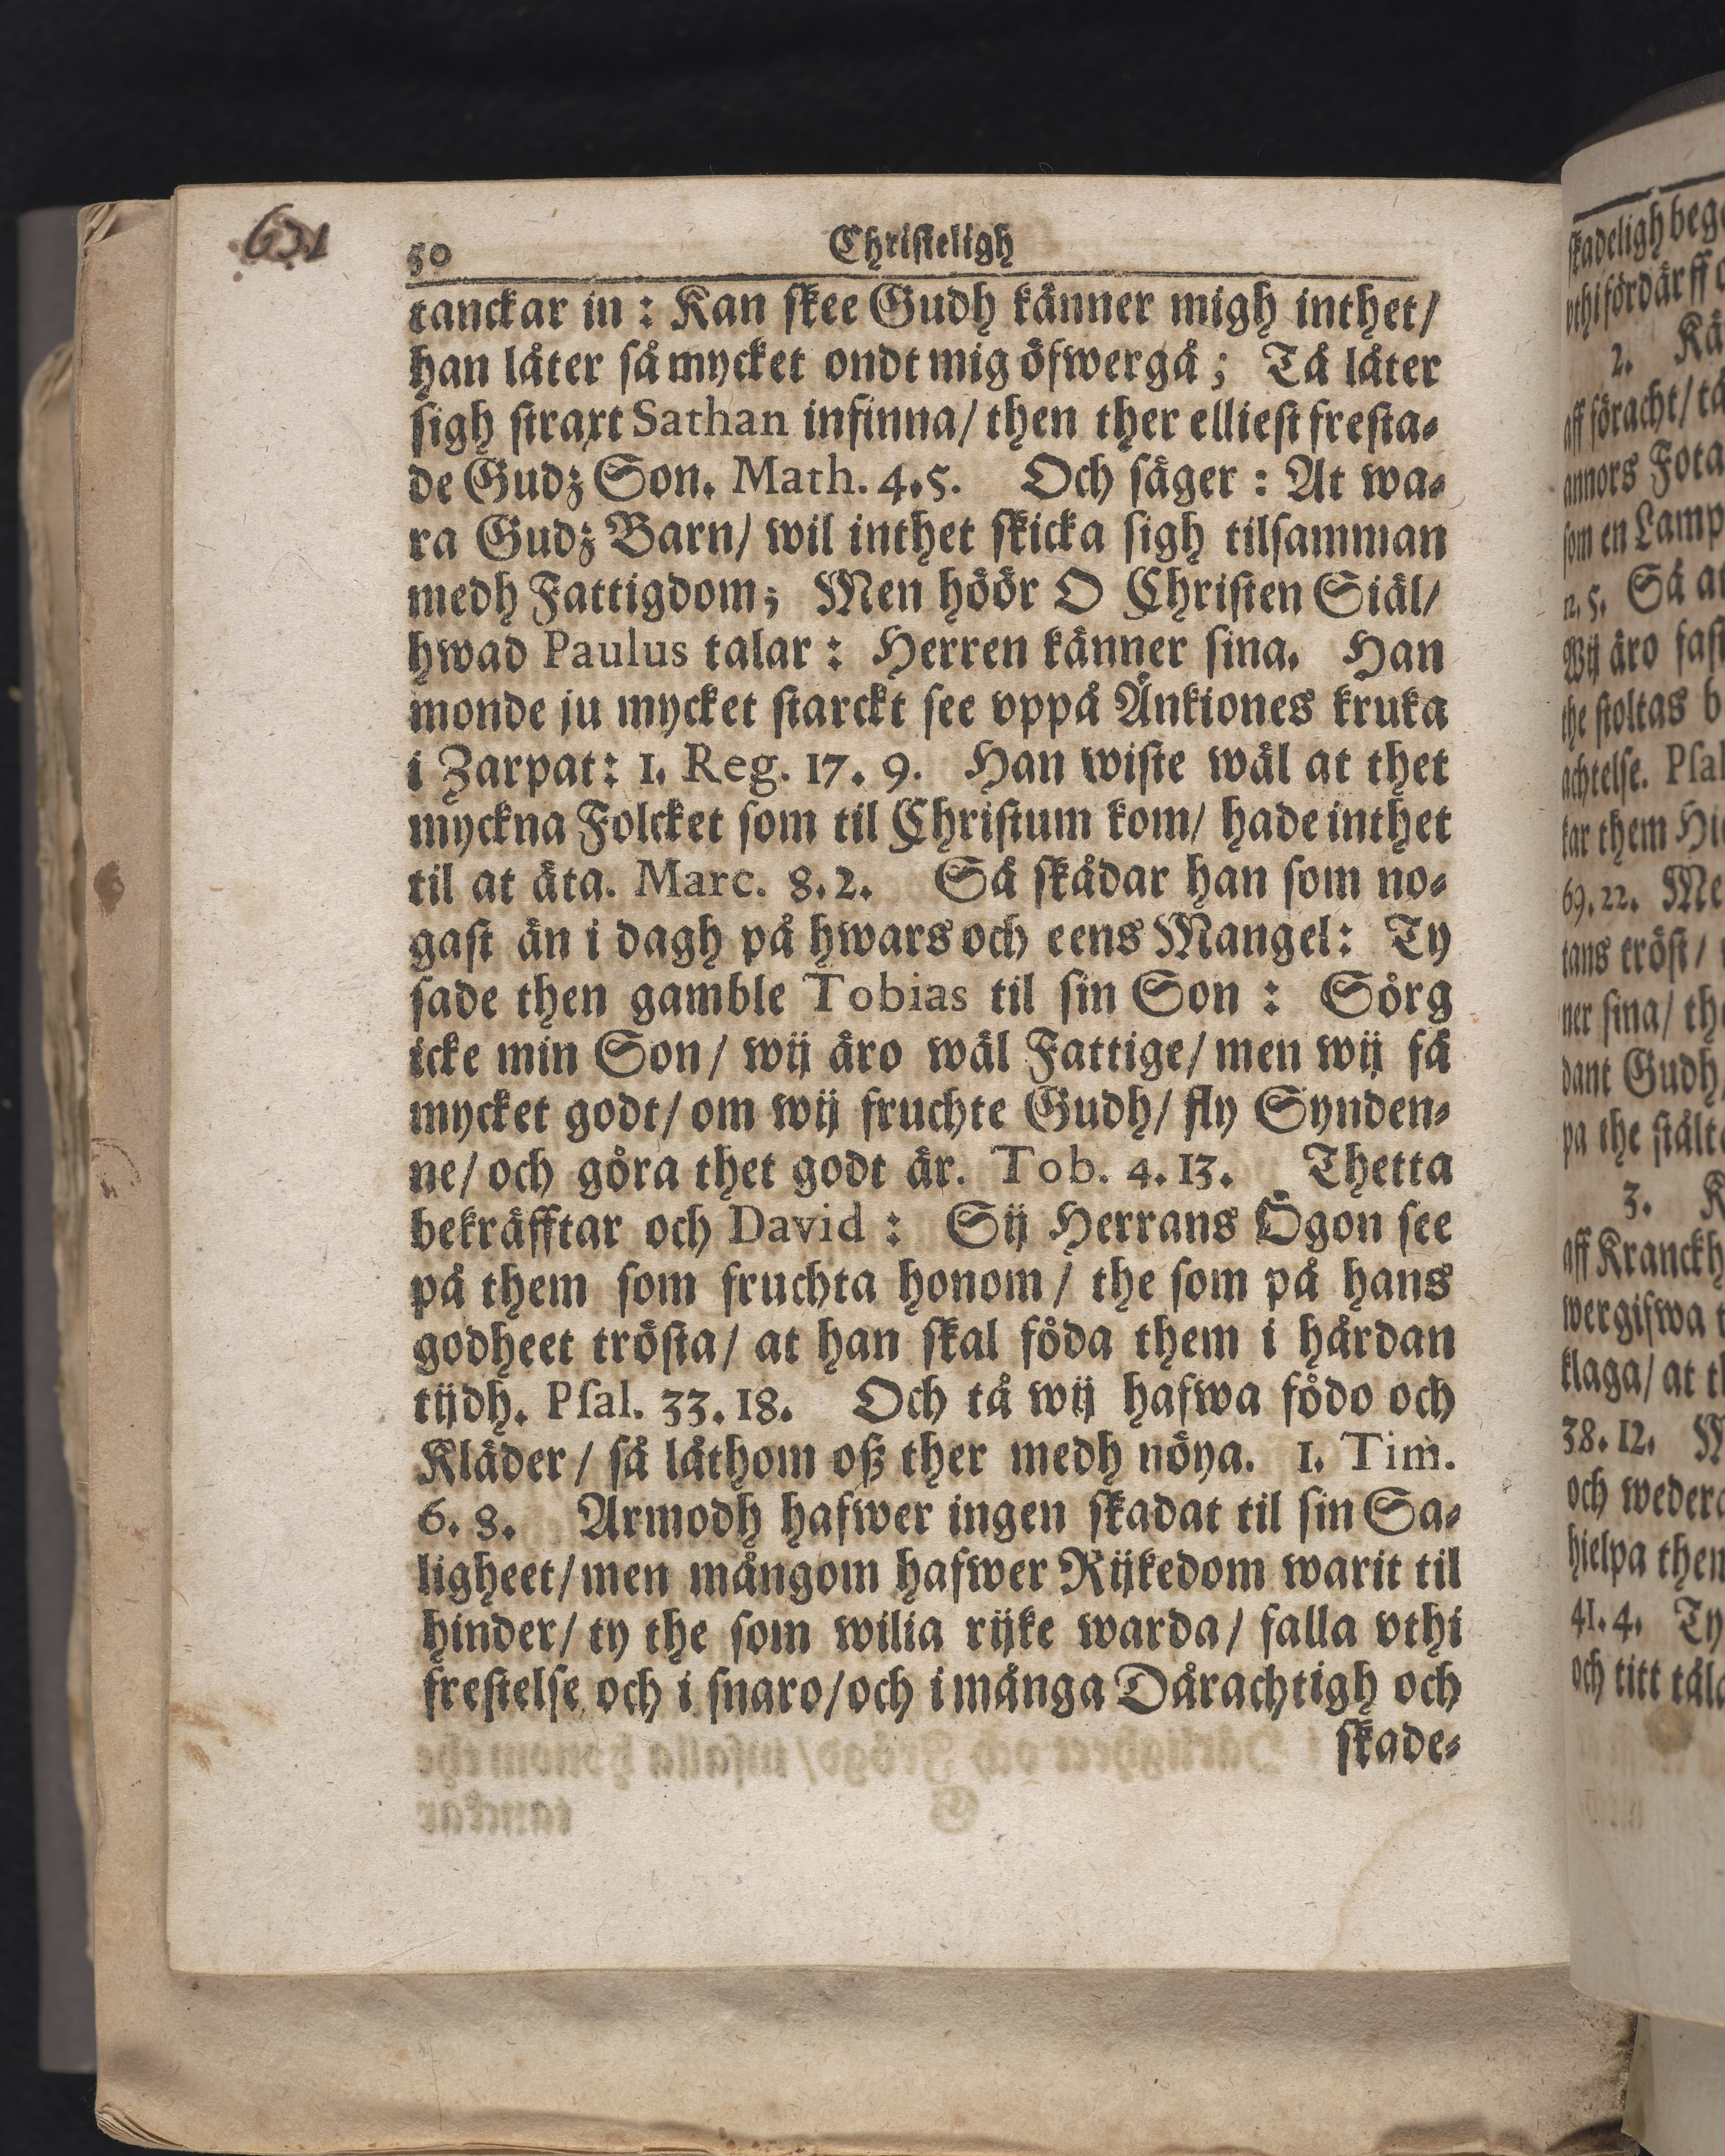 631
50 Christeligh
tanckar in : Kan skee Gudh känner migh inthet/
han låter så mycket ondt mig öfwergå ; Tå låter
sigh straxt Sathan infinna/ then ther elliest fresta-
de Gudz Son. Math. 4.5. Och säger : At wa-
ra Gudz Barn/ wil inthet skicka sigh tilsamman
medh Fattigdom; Men höör O Christen Siäl/
hwad Paulus talar : Herren känner sina. Han
monde ju mycket starckt see vppå Änkiones kruka
i Zarpat: 1. Reg. 17. 9. Han wiste wäl at thet
myckna Folcket som til Christum kom/ hade inthet
til at äta. Marc. 8.2. Så skådar han som no-
gast än i dagh på hwars och eens Mangel: Ty
sade then gamble Tobias til sin Son : Sörg
icke min Son/ wij äro wäl Fattige/ men wij få
mycket godt/ om wij fruchte Gudh/ fly Synden-
ne/ och göra thet godt är. Tob. 4. 13. Thetta
bekräfftar och David : Sij Herrans Ögon see
på them som fruchta honom / the som på hans
godheet trösta/ at han skal föda them i hårdan
tijdh. Psal. 33. 18. Och tå wij hafwa födo och
Kläder / så låthom oß ther medh nöya. 1. Tim.
6. 8. Armodh hafwer ingen skadat til sin Sa-
ligheet/ men mångom hafwer Rijkedom warit til
hinder/ ty the som wilia rijke warda/ falla vthi
frestelse och i snaro/ och i många Dårachtigh och
skade-
skadeligh
2.
aff föracht/
annors Fota
som en Lamp
12. 5. Så at
Wij äro
the stoltas
achtelse.
kar them
69. 22.
tans tröst/
ner sina/
dant Gudh
pa the
3.
wergifwa
klaga/ at
38. 12.
och
hielpa them
41. 4. Ty
och titt